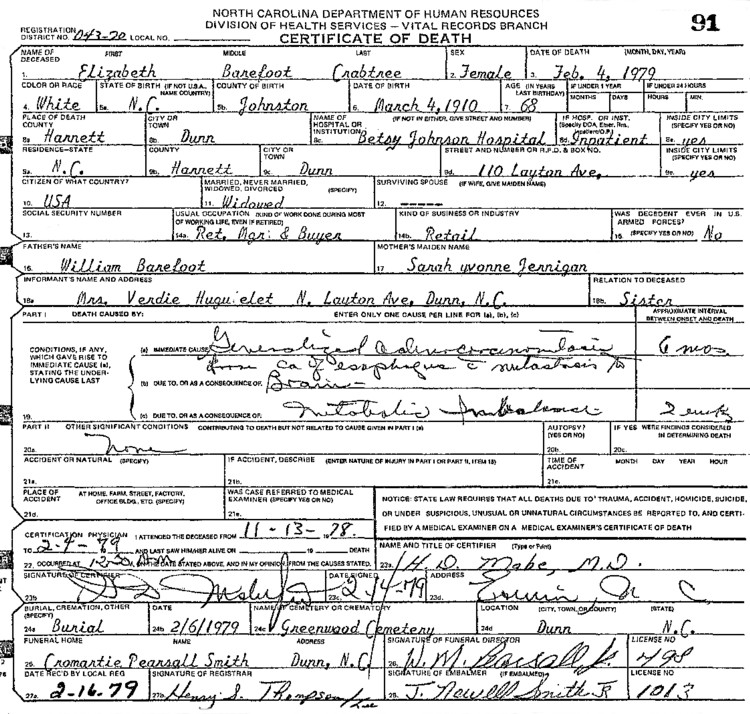 NORTH CAROLINA DEPARTMENT OF HUMAN RESOURCES
DIVISION OF HEALTH SERVICES – VITAL RECORDS BRANCH
CERTIFICATE OF DEATH
91
REGISTRATION DISTRICT NO. 043-20 LOCAL NO.
NAME OF DECEASED FIRST MIDDLE LAST SEX DATE OF DEATH (MONTH, DAY, YEAR)
1. Elizabeth Barefoot Crabtree 2. Female 3. Feb. 4, 1979
COLOR OR RACE STATE OF BIRTH (IF NOT U.S.A., NAME COUNTRY) COUNTY OF BIRTH DATE OF BIRTH AGE (IN YEARS LAST BIRTHDAY) IF UNDER 1 YEAR MONTHS DAYS IF UNDER 24 HOURS HOURS MIN.
4. White 5a. N.C. 5b. Johnston 6. March 4, 1910 7. 68
PLACE OF DEATH COUNTY CITY OR TOWN NAME OF HOSPITAL OR INSTITUTION (IF NOT IN EITHER, GIVE STREET AND NUMBER) IF HOSP. OR INST. INSIDE CITY LIMITS (SPECIFY YES OR NO)
8a Harnett 8b. Dunn 8c. Betsy Johnson Hospital 8d. Inpatient 8e. yes
RESIDENCE-STATE COUNTY CITY OR TOWN STREET AND NUMBER OR R.F.D. & BOX NO. INSIDE CITY LIMITS (SPECIFY YES OR NO)
9a. N.C. 9b. Harnett 9c. Dunn 9d. 110 Layton Ave. 9e. yes
CITIZEN OF WHAT COUNTRY? MARRIED, NEVER MARRIED, WIDOWED, DIVORCED (SPECIFY) SURVIVING SPOUSE (IF WIFE, GIVE MAIDEN NAME)
10. USA 11. Widowed 12. -----
SOCIAL SECURITY NUMBER USUAL OCCUPATION (KIND OF WORK DONE DURING MOST OF WORKING LIFE, EVEN IF RETIRED) KIND OF BUSINESS OR INDUSTRY WAS DECEDENT EVER IN U.S. ARMED FORCES? (SPECIFY YES OR NO)
13. 14a. Ret. Mgr. & Buyer 14b. Retail 15. No
FATHER'S NAME MOTHER'S MAIDEN NAME
16. William Barefoot 17 Sarah yvonne Jernigan
INFORMANT'S NAME AND ADDRESS RELATION TO DECEASED
18a Mrs. Verdie Huguelet N. Layton Ave, Dunn, N.C. 18b. Sister
PART I DEATH CAUSED BY: ENTER ONLY ONE CAUSE PER LINE FOR (a), (b), (c) APPROXIMATE INTERVAL BETWEEN ONSET AND DEATH
CONDITIONS, IF ANY, WHICH GAVE RISE TO IMMEDIATE CAUSE (a), STATING THE UNDERLYING CAUSE LAST
(a) IMMEDIATE CAUSE Generalized adenocarcinomatosis 6 mos
from Ca of esophagus c metastasis to
(b) DUE TO, OR AS A CONSEQUENCE OF: Brain
19. (c) DUE TO, OR AS A CONSEQUENCE OF: Metabolic Imbalance 2 wks
PART II OTHER SIGNIFICANT CONDITIONS CONTRIBUTING TO DEATH BUT NOT RELATED TO CAUSE GIVEN IN PART I (a) AUTOPSY? (YES OR NO) IF YES WERE FINDINGS CONSIDERED IN DETERMINING DEATH
20a. none 20b. 20c.
ACCIDENT OR NATURAL (SPECIFY) IF ACCIDENT, DESCRIBE (ENTER NATURE OF INJURY IN PART I OR PART II, ITEM 18) TIME OF ACCIDENT MONTH DAY YEAR HOUR
21a. 21b. 21c.
PLACE OF ACCIDENT AT HOME, FARM, STREET, FACTORY, OFFICE BLDG., ETC. (SPECIFY) WAS CASE REFERRED TO MEDICAL EXAMINER (SPECIFY YES OR NO)
21d. 21e.
NOTICE: STATE LAW REQUIRES THAT ALL DEATHS DUE TO TRAUMA, ACCIDENT, HOMICIDE, SUICIDE,
OR UNDER SUSPICIOUS, UNUSUAL OR UNNATURAL CIRCUMSTANCES BE REPORTED TO, AND CERTIFIED BY A MEDICAL EXAMINER ON A MEDICAL EXAMINER'S CERTIFICATE OF DEATH
CERTIFICATION PHYSICIAN I ATTENDED THE DECEASED FROM 11-13-1978.
TO 2-4-79 AND LAST SAW HIM/HER ALIVE ON 19 DEATH
22. OCCURRED AT ON THE DATE STATED ABOVE, AND IN MY OPINION FROM THE CAUSES STATED.
NAME AND TITLE OF CERTIFIER (Type or Print)
23a. H. D. Mabe, M.D.
SIGNATURE OF CERTIFIER DATE SIGNED ADDRESS
23b 23c. 2/4/79 23d. Erwin N C
BURIAL, CREMATION, OTHER (SPECIFY) DATE NAME OF CEMETERY OR CREMATORY LOCATION (CITY, TOWN, OR COUNTY) (STATE)
24a Burial 24b 2/6/1979 24c Greenwood Cemetery 24d Dunn N.C.
FUNERAL HOME NAME ADDRESS SIGNATURE OF FUNERAL DIRECTOR LICENSE NO
25. Cromartie Pearsall Smith Dunn, N.C. 26. W. M. Pearsall Jr. 498
DATE REC'D BY LOCAL REG SIGNATURE OF REGISTRAR SIGNATURE OF EMBALMER (IF EMBALMED) LICENSE NO
27a. 2-16-79 27b Henry S. Thompson 28. J. Newell Smith Jr 1013